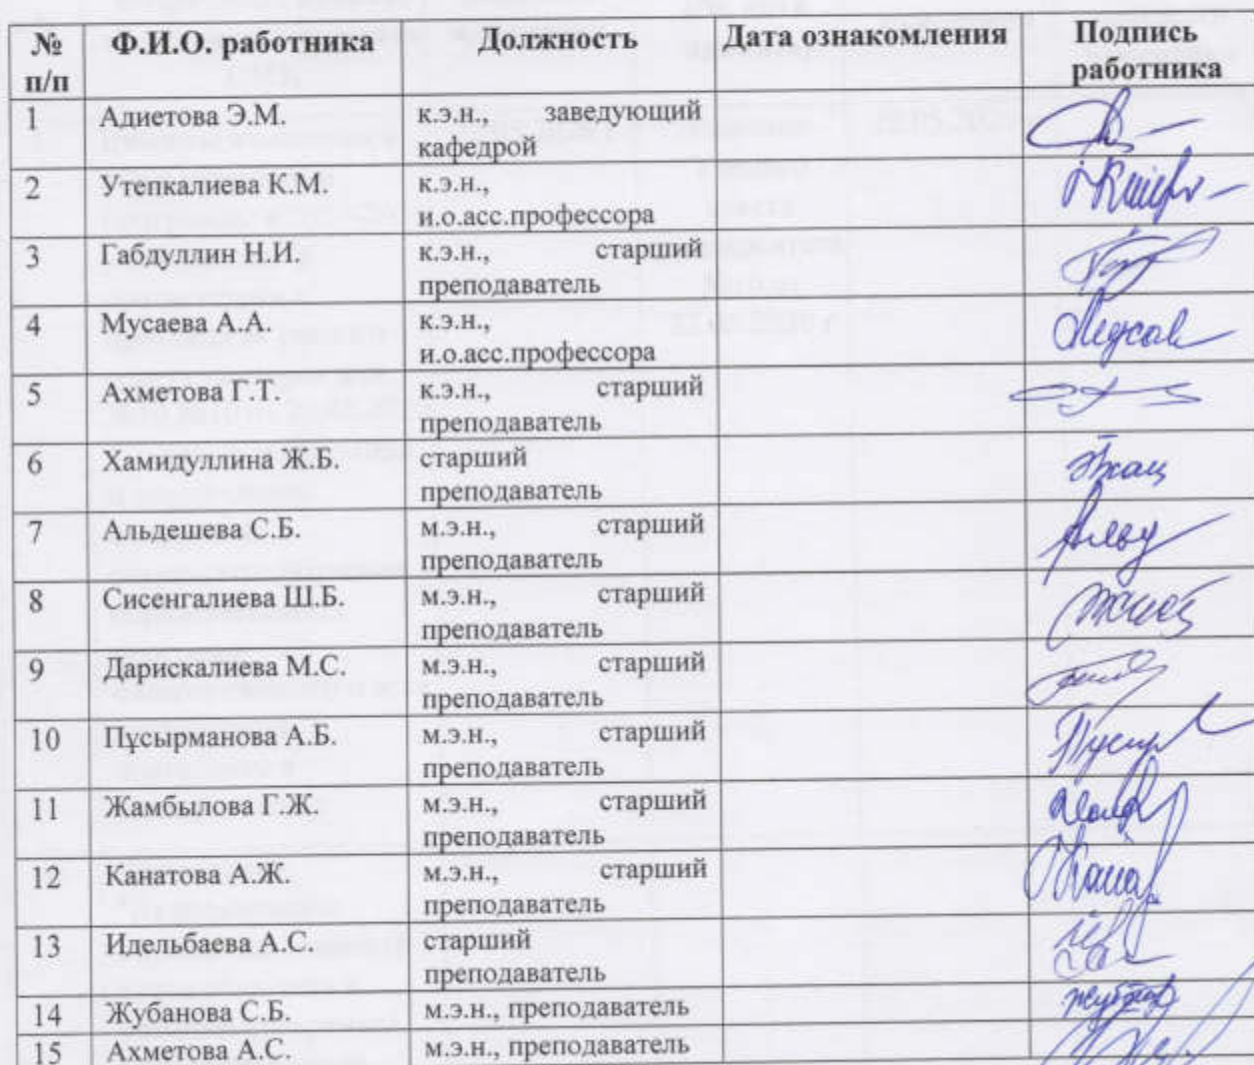 № Ф.И.О. работника Должность Дата ознакомления Подпись
п/п работника
1 Адиетова Э.М. к.э.н., заведующий
кафедрой
2 Утепкалиева К.М. к.э.н.,
и.о.асс.профессора
3 Габдуллин Н.И. к.э.н., старший
преподаватель
4 Мусаева А.А. к.э.н.,
и.о.асс.профессора
5 Ахметова Г.Т. к.э.н., старший
преподаватель
6 Хамидуллина Ж.Б. старший
преподаватель
7 Альдешева С.Б. м.э.н., старший
преподаватель
8 Сисенгалиева Ш.Б. м.э.н., старший
преподаватель
9 Дарискалиева М.С. м.э.н., старший
преподаватель
10 Пұсырманова А.Б. м.э.н., старший
преподаватель
11 Жамбылова Г.Ж. м.э.н., старший
преподаватель
12 Канатова А.Ж. м.э.н., старший
преподаватель
13 Идельбаева А.С. старший
преподаватель
14 Жубанова С.Б. м.э.н., преподаватель
15 Ахметова А.С. м.э.н., преподаватель